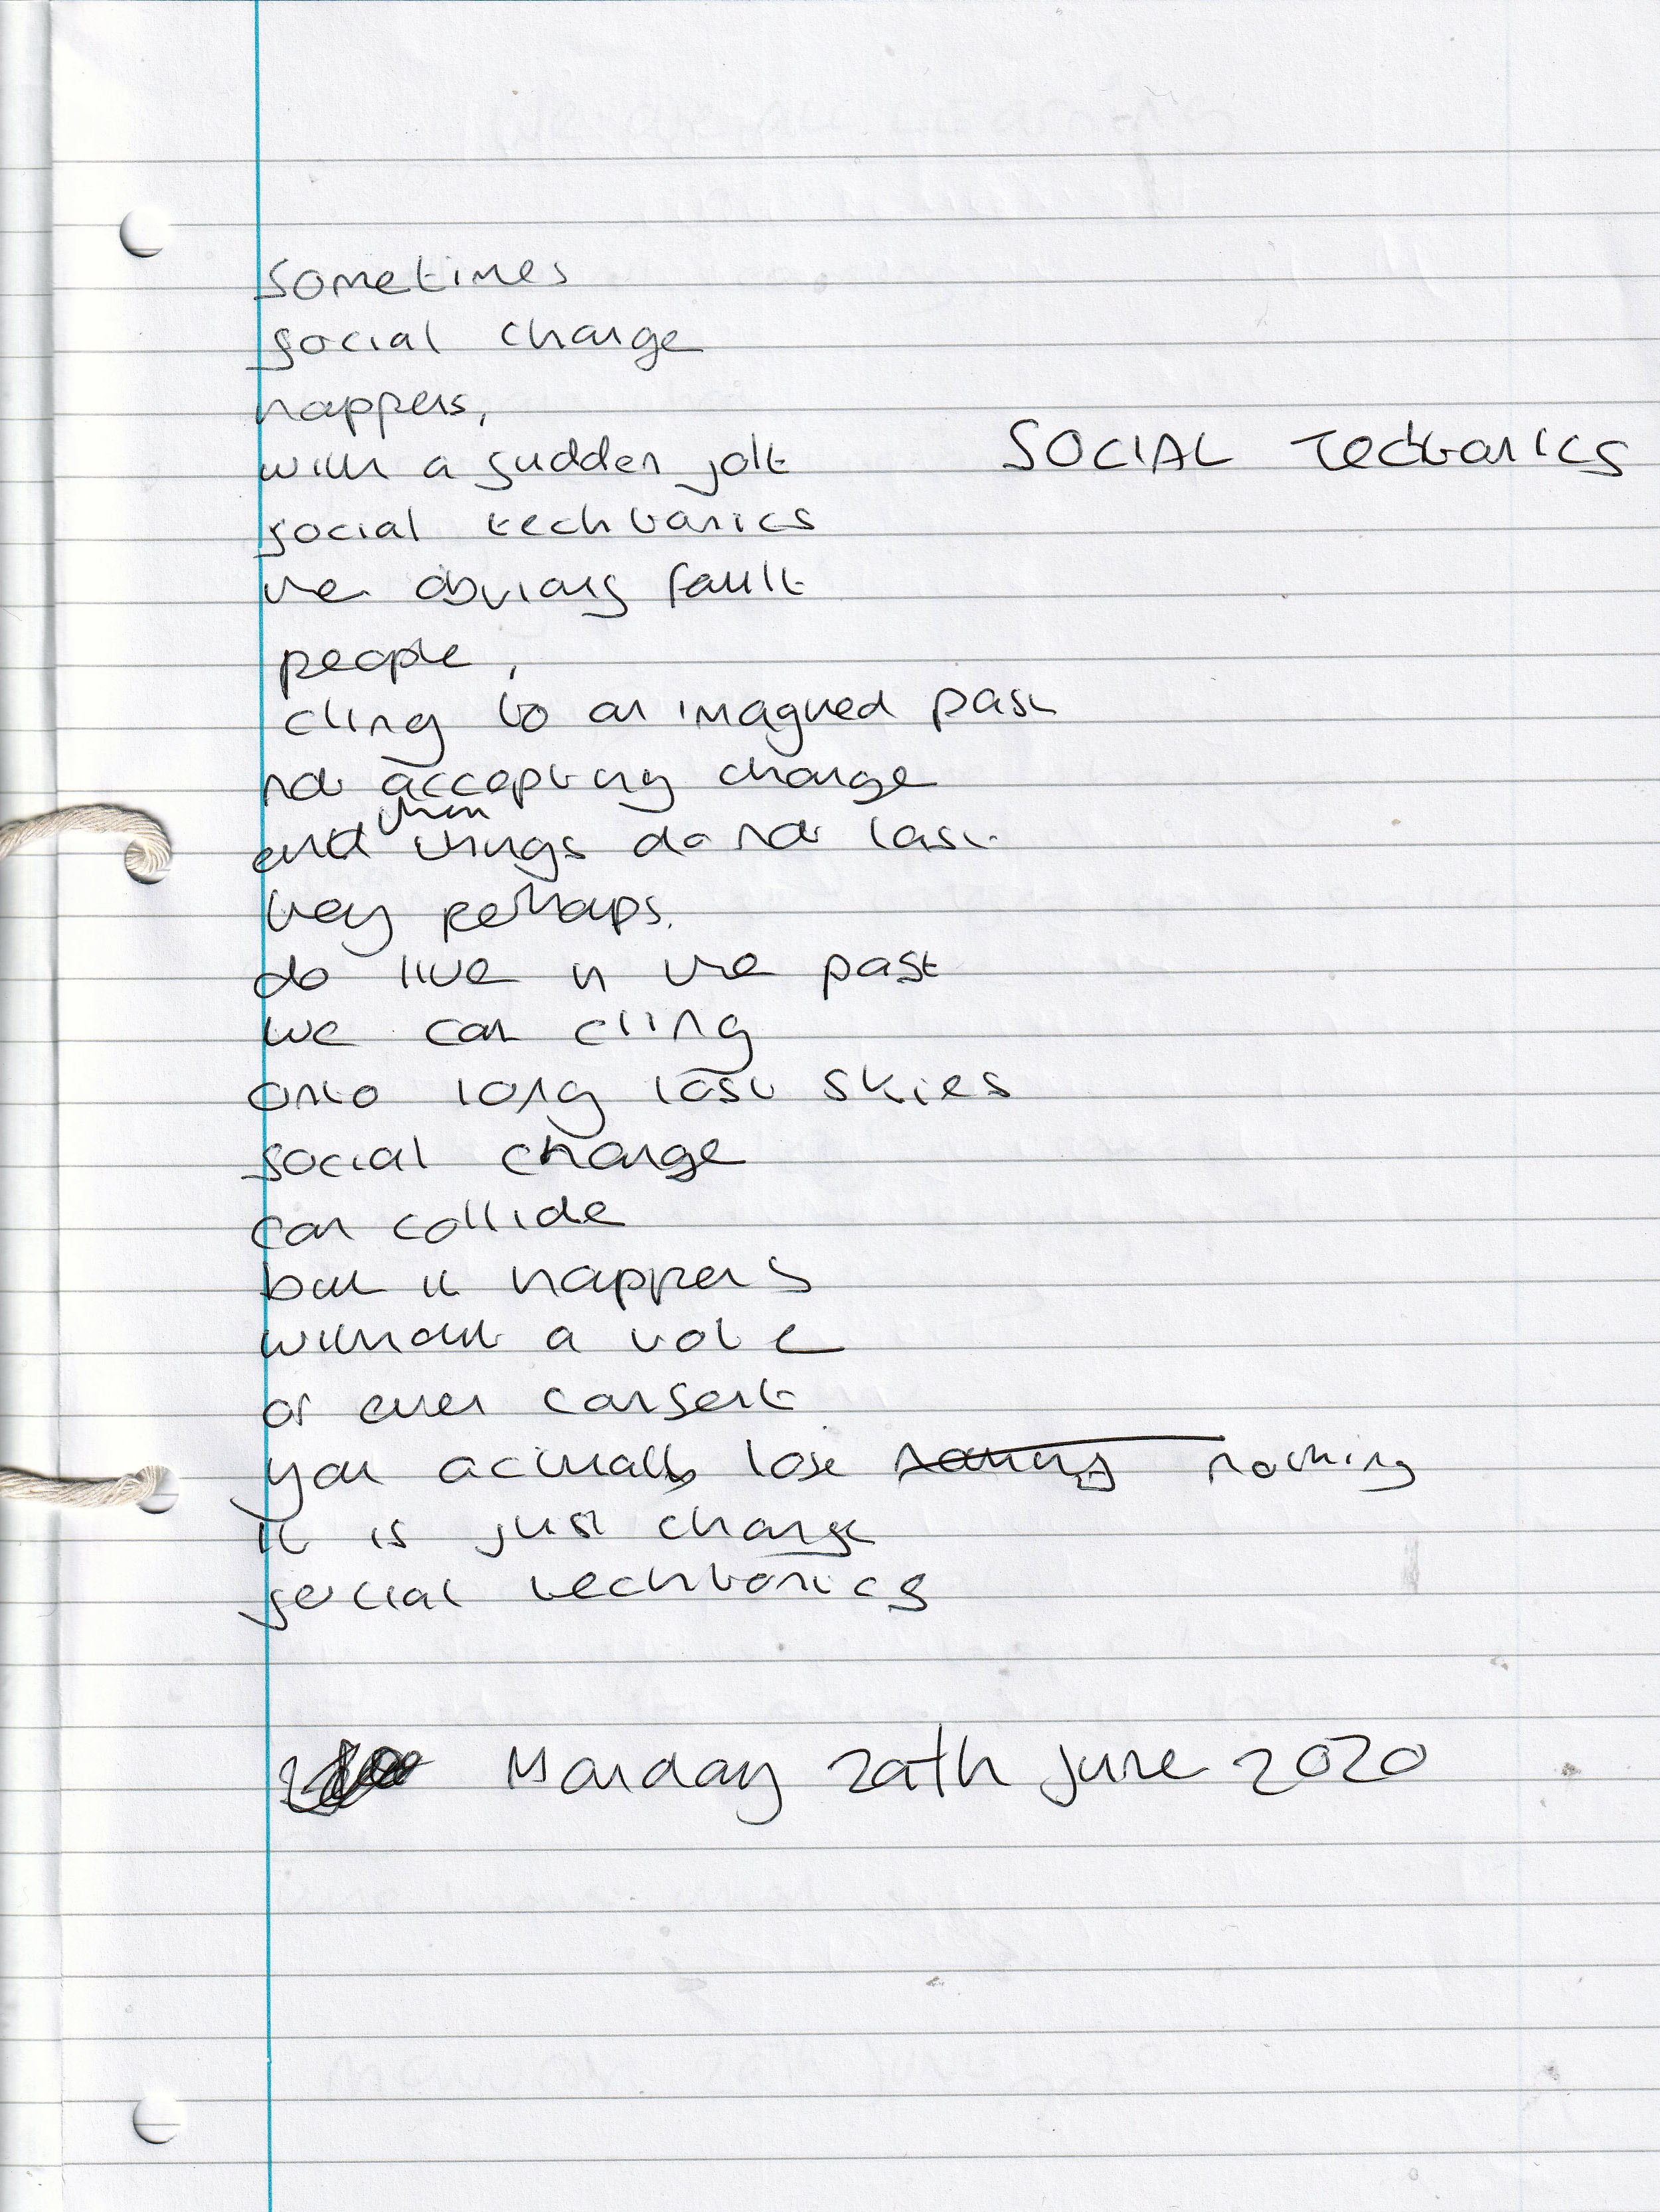 Sometimes
social change
happens,
with a sudden jolt
SOCIAL Tectonics
social techtonics
the obvious fault
people,
cling to an imagined past
not accepting change
and when things do not last
they perhaps.
do live in the past
we can cling
onto long lost skies
social change
can collide
but it happens
without a vote
or even consent
you actually lose nothing
it is just change
social techtonics
Monday 20th June 2020